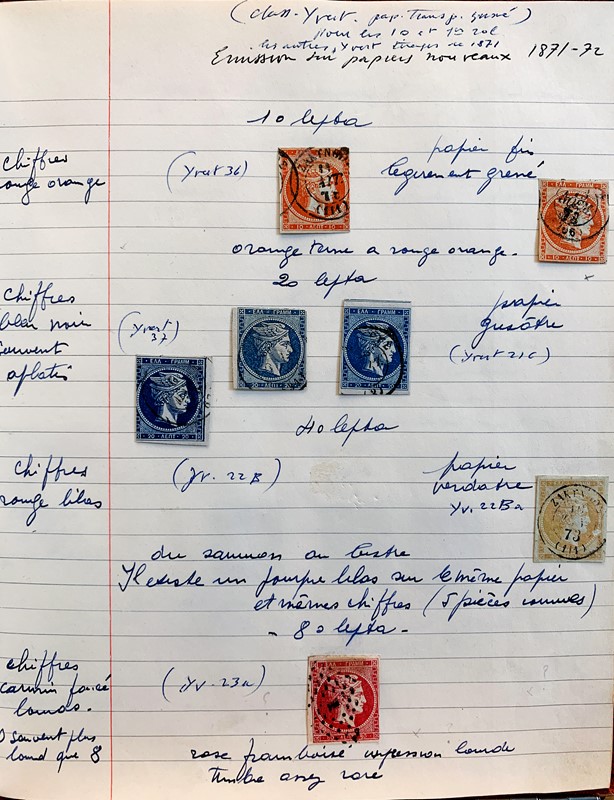 (class. Yvert. pap. transp. grené)
pour les 10 et 1er 20l
les autres, Yvert tirages de 1871
Emission sur papiers nouveaux 1871-72
10 lepta
chiffres
rouge orange
(Yvert 36)
papier fin
legerement grené
orange terne a rouge orange.
20 lepta
chiffres
bleu noir
souvent
aplatis
(Yvert
37)
papier
(Yvert 21c)
ΕΛΛ ΓΡΑΜΜ
20 ΛΕΠΤ 20
40 lepta
chiffres
rouge lilas
(Yv. 22B)
papier
verdatre
Yv. 22Ba
ΖΑΚΥΝΘΟΣ
73
(111)
du saumon au bistre
Il existe un pourpre lilas sur le même papier
et mêmes chiffres (5 pièces connues)
- 80 lepta -
chiffres
carmin foncé
lourds.
0 souvent plus
lourd que 8
(Yv. 23a)
rose framboisé impression lourde
timbre assez rare